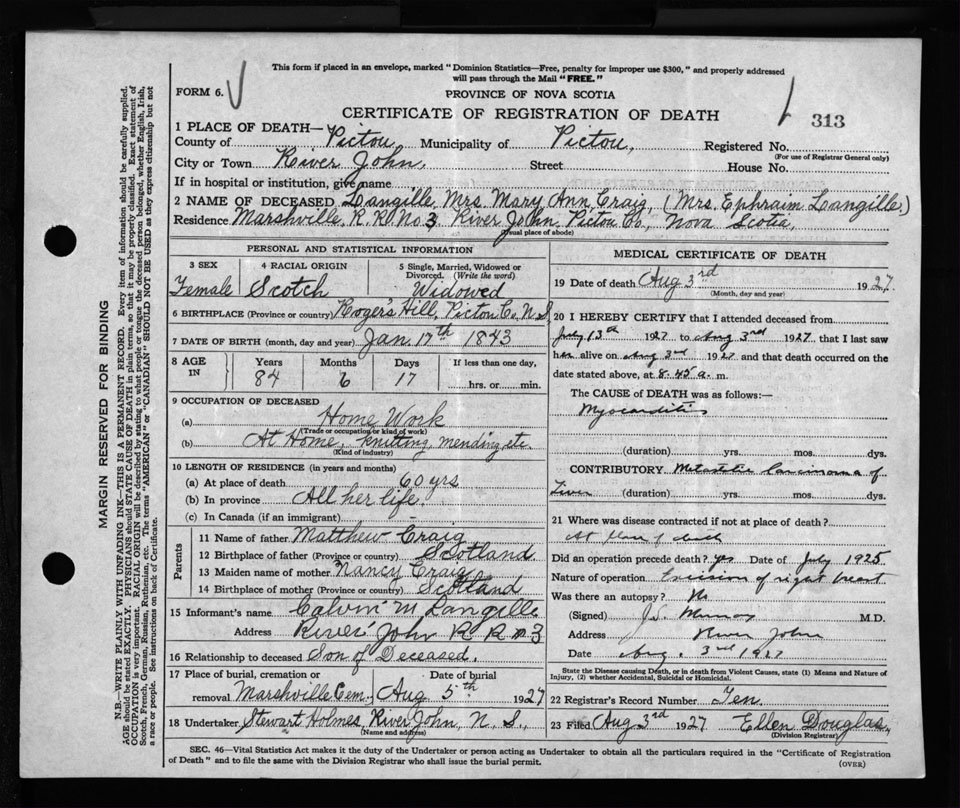 This form if placed in an envelope, marked "Dominion Statistics—Free, penalty for improper use $300," and properly addressed
will pass through the Mail "FREE."
FORM 6.
PROVINCE OF NOVA SCOTIA
CERTIFICATE OF REGISTRATION OF DEATH
313
1 PLACE OF DEATH—
County of Pictou Municipality of Pictou, Registered No.
(For use of Registrar General only)
City or Town River John, Street House No.
If in hospital or institution, give name
2 NAME OF DECEASED Langille, Mrs. Mary Ann Craig, (Mrs. Ephraim Langille)
Residence Marshville, R.R. No 3 River John, Pictou Co., Nova Scotia,
(usual place of abode)
PERSONAL AND STATISTICAL INFORMATION
3 SEX Female
4 RACIAL ORIGIN Scotch
5 Single, Married, Widowed or Divorced. (Write the word) Widowed
6 BIRTHPLACE (Province or country) Roger's Hill, Pictou Co, N.S.
7 DATE OF BIRTH (month, day and year) Jan. 17th 1843
8 AGE IN Years 84 Months 6 Days 17 If less than one day, hrs. or min.
9 OCCUPATION OF DECEASED
(a) Home Work
(Trade or occupation or kind of work)
(b) At Home, knitting, mending etc
(Kind of industry)
10 LENGTH OF RESIDENCE (in years and months)
(a) At place of death 60 yrs
(b) In province All her life.
(c) In Canada (if an immigrant)
Parents
11 Name of father Matthew Craig
12 Birthplace of father (Province or country) Scotland
13 Maiden name of mother Nancy Craig
14 Birthplace of mother (Province or country) Scotland
15 Informant's name Calvin M Langille
Address River John R R no 3
16 Relationship to deceased Son of Deceased.
17 Place of burial, cremation or removal Marshville Cem. Date of burial Aug 5th 1927
18 Undertaker Stewart Holmes, River John, N. S.,
(Name and address)
MEDICAL CERTIFICATE OF DEATH
19 Date of death Aug 3rd 1927.
(Month, day and year)
20 I HEREBY CERTIFY that I attended deceased from
July 13th 1927 to Aug 3rd 1927, that I last saw
her alive on Aug 3rd 1927 and that death occurred on
date stated above, at 8.45 a. m.
The CAUSE of DEATH was as follows:—
Myocarditis
(duration) yrs. mos. dys.
CONTRIBUTORY Metastatic Carcinoma of
Liver (duration) yrs. mos. dys.
21 Where was disease contracted if not at place of death?
At place of death
Did an operation precede death? yes Date of July 1925
Nature of operation Excision of right breast
Was there an autopsy? No
(Signed) M.D.
Address River John
Date Aug. 3rd 1927
State the Disease causing Death, or in death from Violent Causes, state (1) Means and Nature of
Injury, (2) whether Accidental, Suicidal or Homicidal.
22 Registrar's Record Number Ten.
23 Filed Aug 3rd 1927 Ellen Douglas,
(Division Registrar)
SEC. 46—Vital Statistics Act makes it the duty of the Undertaker or person acting as Undertaker to obtain all the particulars required in the "Certificate of Registration
of Death" and to file the same with the Division Registrar who shall issue the burial permit.
(OVER)
MARGIN RESERVED FOR BINDING
N.B.—WRITE PLAINLY WITH UNFADING INK—THIS IS A PERMANENT RECORD. Every item of information should be carefully supplied.
AGE should be stated EXACTLY. PHYSICIANS should STATE CAUSE OF DEATH in plain terms, so that it may be properly classified. Exact statement of
OCCUPATION is very important. RACIAL ORIGIN will be described by stating to what people or tongue the deceased person belonged, whether English, Irish,
Scotch, French, German, Russian, Ruthenian, etc. The terms "AMERICAN" or "CANADIAN" SHOULD NOT BE USED as they express citizenship but not
a race or people. See instructions on back of Certificate.